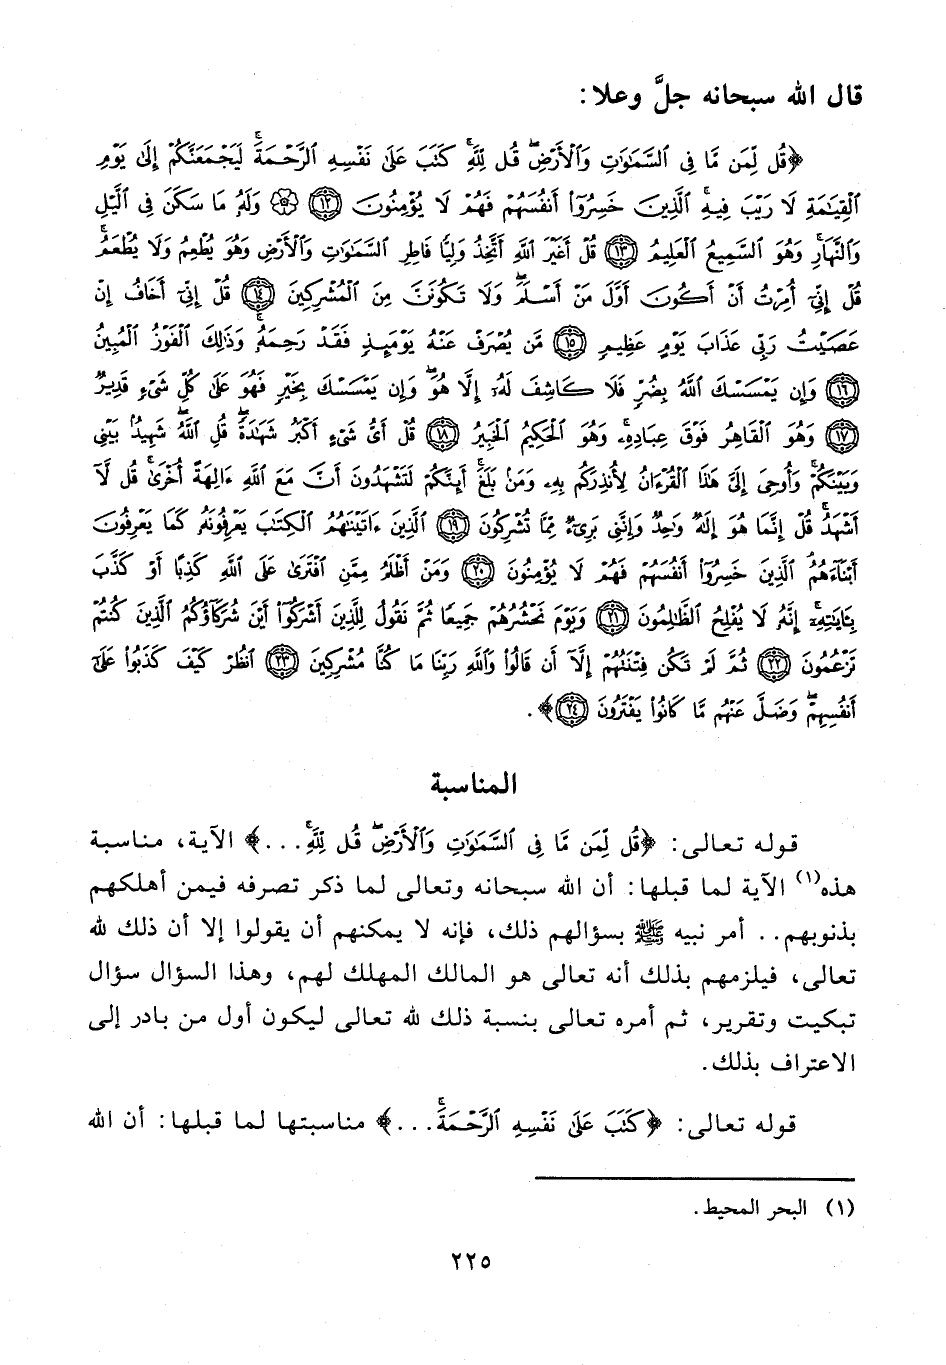 قال الله سبحانه جلَّ وعلا:
﴿قُل لِّمَن مَّا فِى السَّمَٰوَٰتِ وَالْأَرْضِۖ قُل لِّلَّهِۚ كَتَبَ عَلَىٰ نَفْسِهِ الرَّحْمَةَۚ لَيَجْمَعَنَّكُمْ إِلَىٰ يَوْمِ
الْقِيَٰمَةِ لَا رَيْبَ فِيهِۚ الَّذِينَ خَسِرُوٓا۟ أَنفُسَهُمْ فَهُمْ لَا يُؤْمِنُونَ ﴿١٢﴾ ۞ وَلَهُۥ مَا سَكَنَ فِى الَّيْلِ
وَالنَّهَارِۚ وَهُوَ السَّمِيعُ الْعَلِيمُ ﴿١٣﴾ قُلْ أَغَيْرَ اللَّهِ أَتَّخِذُ وَلِيًّا فَاطِرِ السَّمَٰوَٰتِ وَالْأَرْضِ وَهُوَ يُطْعِمُ وَلَا يُطْعَمُۗ
قُلْ إِنِّىٓ أُمِرْتُ أَنْ أَكُونَ أَوَّلَ مَنْ أَسْلَمَۖ وَلَا تَكُونَنَّ مِنَ الْمُشْرِكِينَ ﴿١٤﴾ قُلْ إِنِّىٓ أَخَافُ إِنْ
عَصَيْتُ رَبِّى عَذَابَ يَوْمٍ عَظِيمٍ ﴿١٥﴾ مَّن يُصْرَفْ عَنْهُ يَوْمَئِذٍ فَقَدْ رَحِمَهُۥۚ وَذَٰلِكَ الْفَوْزُ الْمُبِينُ
﴿١٦﴾ وَإِن يَمْسَسْكَ اللَّهُ بِضُرٍّ فَلَا كَاشِفَ لَهُۥٓ إِلَّا هُوَۖ وَإِن يَمْسَسْكَ بِخَيْرٍ فَهُوَ عَلَىٰ كُلِّ شَىْءٍ قَدِيرٌ
﴿١٧﴾ وَهُوَ الْقَاهِرُ فَوْقَ عِبَادِهِۦۚ وَهُوَ الْحَكِيمُ الْخَبِيرُ ﴿١٨﴾ قُلْ أَىُّ شَىْءٍ أَكْبَرُ شَهَٰدَةًۖ قُلِ اللَّهُۖ شَهِيدٌۢ بَيْنِى
وَبَيْنَكُمْۚ وَأُوحِىَ إِلَىَّ هَٰذَا الْقُرْءَانُ لِأُنذِرَكُم بِهِۦ وَمَنۢ بَلَغَۚ أَئِنَّكُمْ لَتَشْهَدُونَ أَنَّ مَعَ اللَّهِ ءَالِهَةً أُخْرَىٰۚ قُل لَّآ
أَشْهَدُۚ قُلْ إِنَّمَا هُوَ إِلَٰهٌ وَٰحِدٌ وَإِنَّنِى بَرِىٓءٌ مِّمَّا تُشْرِكُونَ ﴿١٩﴾ الَّذِينَ ءَاتَيْنَٰهُمُ الْكِتَٰبَ يَعْرِفُونَهُۥ كَمَا يَعْرِفُونَ
أَبْنَآءَهُمُۘ الَّذِينَ خَسِرُوٓا۟ أَنفُسَهُمْ فَهُمْ لَا يُؤْمِنُونَ ﴿٢٠﴾ وَمَنْ أَظْلَمُ مِمَّنِ افْتَرَىٰ عَلَى اللَّهِ كَذِبًا أَوْ كَذَّبَ
بِـَٔايَٰتِهِۦٓۗ إِنَّهُۥ لَا يُفْلِحُ الظَّٰلِمُونَ ﴿٢١﴾ وَيَوْمَ نَحْشُرُهُمْ جَمِيعًا ثُمَّ نَقُولُ لِلَّذِينَ أَشْرَكُوٓا۟ أَيْنَ شُرَكَآؤُكُمُ الَّذِينَ كُنتُمْ
تَزْعُمُونَ ﴿٢٢﴾ ثُمَّ لَمْ تَكُن فِتْنَتُهُمْ إِلَّآ أَن قَالُوا۟ وَاللَّهِ رَبِّنَا مَا كُنَّا مُشْرِكِينَ ﴿٢٣﴾ انظُرْ كَيْفَ كَذَبُوا۟ عَلَىٰٓ
أَنفُسِهِمْۚ وَضَلَّ عَنْهُم مَّا كَانُوا۟ يَفْتَرُونَ ﴿٢٤﴾﴾.
المناسبة
قوله تعالى: ﴿قُل لِّمَن مَّا فِى السَّمَٰوَٰتِ وَالْأَرْضِۖ قُل لِّلَّهِۚ ...﴾ الآية، مناسبة
هذه(١) الآية لما قبلها: أن الله سبحانه وتعالى لما ذكر تصرفه فيمن أهلكهم
بذنوبهم.. أمر نبيه ﷺ بسؤالهم ذلك، فإنه لا يمكنهم أن يقولوا إلا أن ذلك لله
تعالى، فيلزمهم بذلك أنه تعالى هو المالك المهلك لهم، وهذا السؤال سؤال
تبكيت وتقرير، ثم أمره تعالى بنسبة ذلك لله تعالى ليكون أول من بادر إلى
الاعتراف بذلك.
قوله تعالى: ﴿كَتَبَ عَلَىٰ نَفْسِهِ الرَّحْمَةَۚ ...﴾ مناسبتها لما قبلها: أن الله
(١) البحر المحيط.
٢٢٥